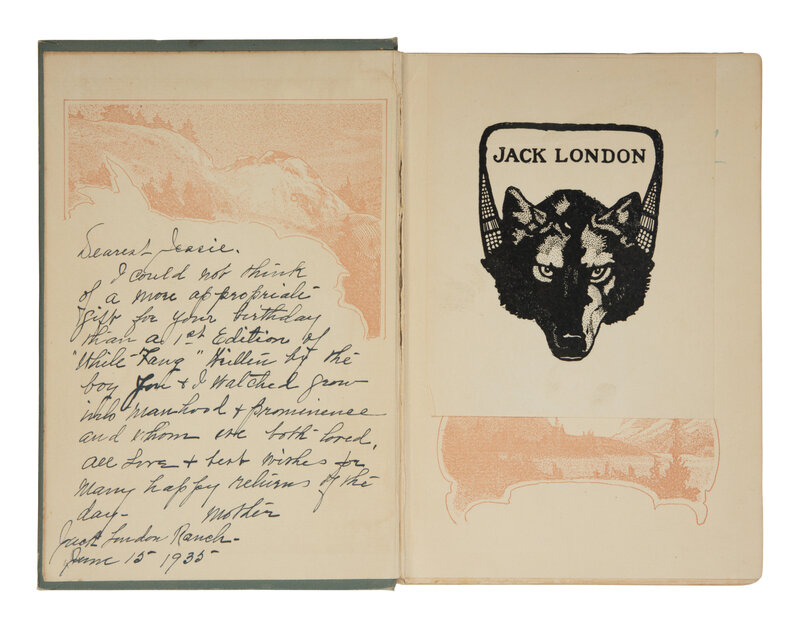 Dearest Jessie.
I could not think
of a more appropriate
gift for your birthday
than a 1st Edition of
"White Fang" Written by the
boy You & I Watched grow
into Manhood & Prominence
and whom we both loved.
All Love & best wishes for
Many happy returns of the
day- Mother
Jack London Ranch-
June 15 1935
JACK LONDON